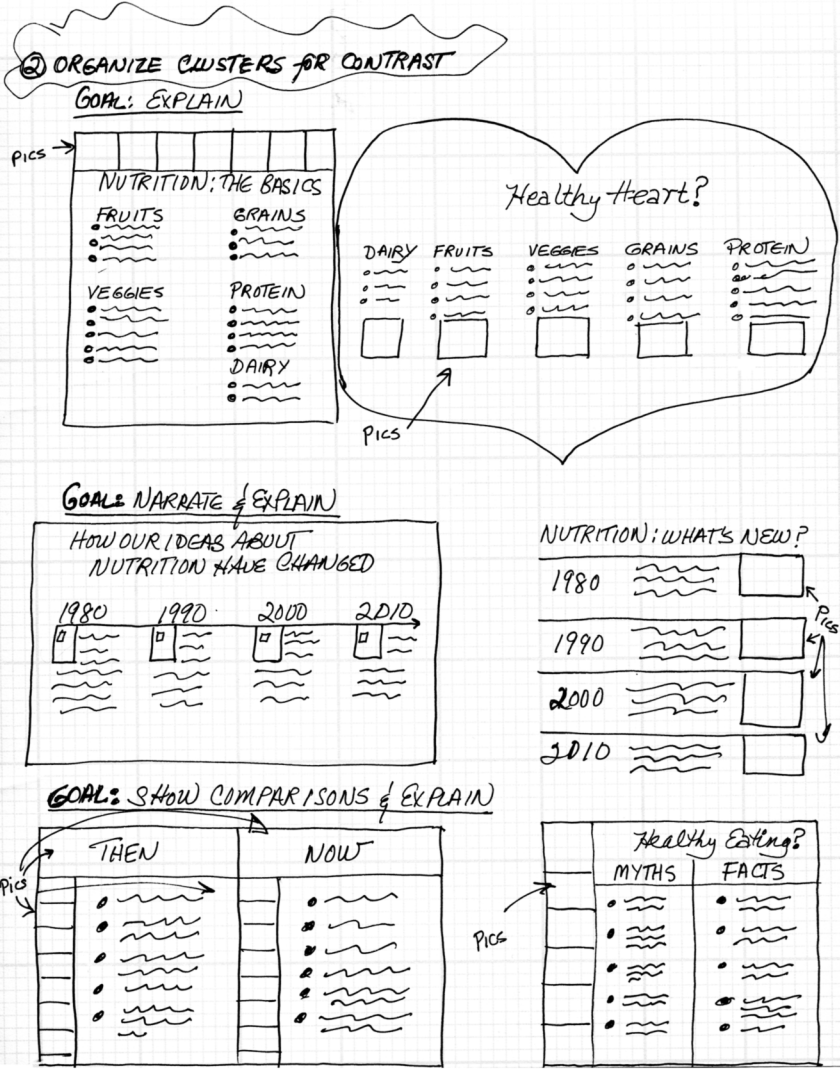 ② ORGANIZE CLUSTERS FOR CONTRAST
GOAL: EXPLAIN
PICS
NUTRITION: THE BASICS
FRUITS
GRAINS
VEGGIES
PROTEIN
DAIRY
Healthy Heart?
DAIRY FRUITS VEGGIES GRAINS PROTEIN
PICS
GOAL: NARRATE & EXPLAIN
HOW OUR IDEAS ABOUT
NUTRITION HAVE CHANGED
1980 1990 2000 2010
NUTRITION: WHAT'S NEW?
1980
1990
2000
2010
PICS
GOAL: SHOW COMPARISONS & EXPLAIN
PICS
THEN NOW
PICS
Healthy Eating?
MYTHS FACTS